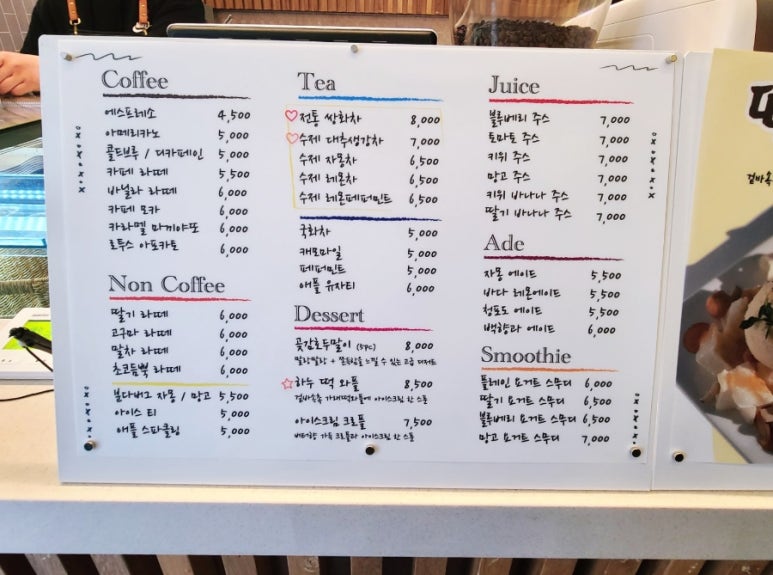 Coffee
에스프레소 4,500
아메리카노 5,000
콜드브루 / 디카페인 5,000
카페 라떼 5,500
바닐라 라떼 6,000
카페 모카 6,000
카라멜 마끼야또 6,000
로투스 아포카토 6,000
Non Coffee
딸기 라떼 6,000
고구마 라떼 6,000
말차 라떼 6,000
초코듬뿍 라떼 6,000
봄다버그 자몽 / 망고 5,500
아이스 티 5,000
애플 스파클링 5,000
Tea
전통 쌍화차 8,000
수제 대추생강차 7,000
수제 자몽차 6,500
수제 레몬차 6,500
수제 레몬페퍼민트 6,500
국화차 5,000
캐모마일 5,000
페퍼민트 5,000
애플 유자티 6,000
Dessert
곶감호두말이 (5pc) 8,000
말랑말랑 + 쫀득함을 느낄 수 있는 고급 디저트
하수 떡 와플 8,500
겉바속촉 가래떡와플에 아이스크림 한 스푼
아이스크림 크로플 7,500
버터향 가득 크로플과 아이스크림 한 스푼
Juice
블루베리 주스 7,000
토마토 주스 7,000
키위 주스 7,000
망고 주스 7,000
키위 바나나 주스 7,000
딸기 바나나 주스 7,000
Ade
자몽 에이드 5,500
바다 레몬에이드 5,500
청포도 에이드 5,500
백향과 에이드 6,000
Smoothie
플레인 요거트 스무디 6,000
딸기 요거트 스무디 6,500
블루베리 요거트 스무디 6,500
망고 요거트 스무디 7,000
겉바속